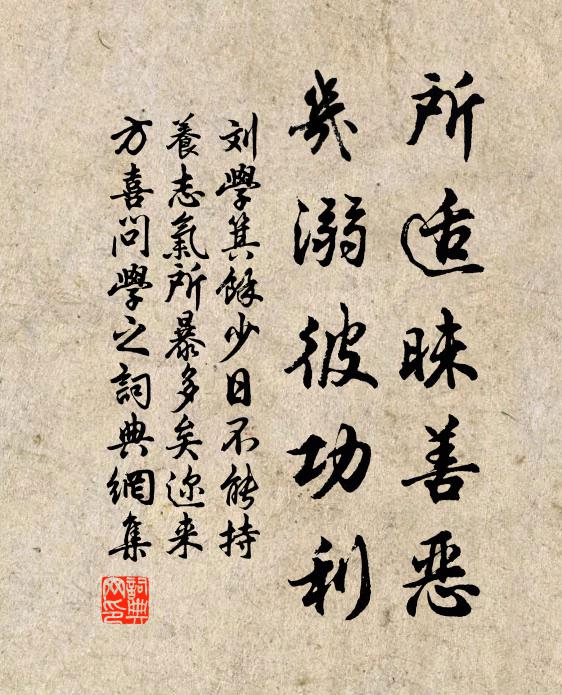 所适昧善恶
几溺彼功利
刘學箕餘少日不能持
養志氣所暴多矣迩来
方喜问學之詞典網集
詞典